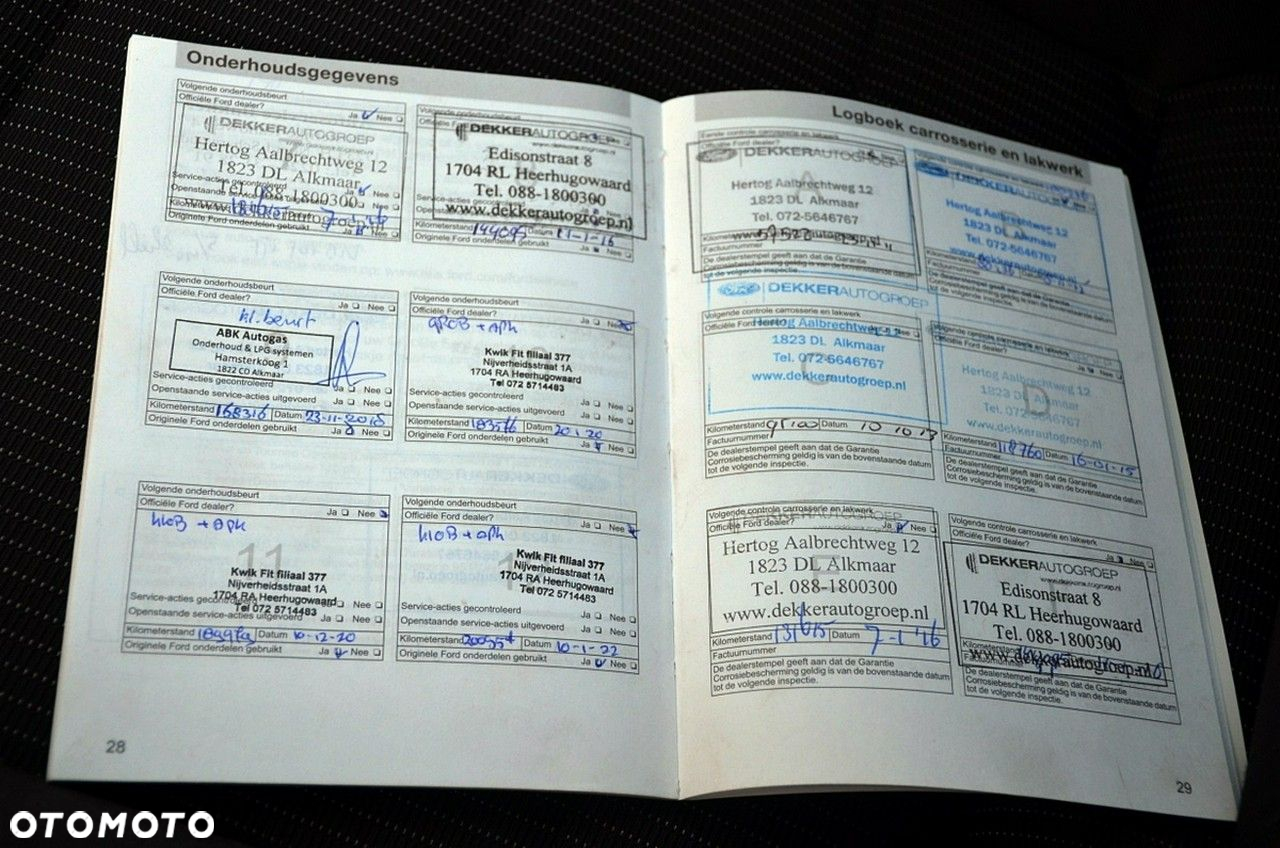 Onderhoudsgegevens
Volgende onderhoudsbeurt
Officiële Ford dealer?
Ja Nee
DEKKERAUTOGROEP
Hertog Aalbrechtweg 12
1823 DL Alkmaar
Tel. 088-1800300
Service-acties gecontroleerd
Kilometerstand 131615
Originele Ford onderdelen gebruikt
Volgende onderhoudsbeurt
DEKKERAUTOGROEP
Edisonstraat 8
1704 RL Heerhugowaard
Tel. 088-1800300
www.dekkerautogroep.nl
Kilometerstand Datum
Originele Ford onderdelen gebruikt Ja Nee
Volgende onderhoudsbeurt
Officiële Ford dealer?
Ja Nee
kl. beurt
ABK Autogas
Onderhoud & LPG systemen
Hamsterkoog 1
1822 CD Alkmaar
Service-acties gecontroleerd Ja Nee
Openstaande service-acties uitgevoerd Ja Nee
Kilometerstand 168316 Datum 23-11-2018
Originele Ford onderdelen gebruikt Ja Nee
Volgende onderhoudsbeurt
Officiële Ford dealer?
Ja Nee
GROB + APK
Kwik Fit filiaal 377
Nijverheidsstraat 1A
1704 RA Heerhugowaard
Tel 072 5714483
Service-acties gecontroleerd Ja Nee
Openstaande service-acties uitgevoerd Ja Nee
Kilometerstand Datum 20-1-20
Originele Ford onderdelen gebruikt Ja Nee
Volgende onderhoudsbeurt
Officiële Ford dealer?
Ja Nee
KLOB + APK
11
Kwik Fit filiaal 377
Nijverheidsstraat 1A
1704 RA Heerhugowaard
Tel 072 5714483
Service-acties gecontroleerd Ja Nee
Openstaande service-acties uitgevoerd Ja Nee
Kilometerstand Datum 10-12-20
Originele Ford onderdelen gebruikt Ja Nee
Volgende onderhoudsbeurt
Officiële Ford dealer?
Ja Nee
KLOB + APK
Kwik Fit filiaal 377
Nijverheidsstraat 1A
1704 RA Heerhugowaard
Tel 072 5714483
Service-acties gecontroleerd Ja Nee
Openstaande service-acties uitgevoerd Ja Nee
Kilometerstand Datum 10-1-22
Originele Ford onderdelen gebruikt Ja Nee
28
Logboek carrosserie en lakwerk
Eerste controle carrosserie en lakwerk
DEKKERAUTOGROEP
Hertog Aalbrechtweg 12
1823 DL Alkmaar
Tel. 072-5646767
www.dekkerautogroep.nl
Factuurnummer
De dealerstempel geeft aan dat de Garantie
Corrosiebescherming geldig is van bovenstaande datum
tot de volgende inspectie.
DEKKERAUTOGROEP
Hertog Aalbrechtweg 12
1823 DL Alkmaar
Tel. 072-5646767
www.dekkerautogroep.nl
tot de volgende inspectie.
DEKKERAUTOGROEP
Volgende controle carrosserie en lakwerk
Officiële Ford dealer?
Hertog Aalbrechtweg 12
1823 DL Alkmaar
Tel. 072-5646767
www.dekkerautogroep.nl
C
Kilometerstand 95100 Datum 10 10 13
Factuurnummer
De dealerstempel geeft aan dat de Garantie
Corrosiebescherming geldig is van bovenstaande datum
tot de volgende inspectie.
Volgende controle carrosserie en lakwerk
Officiële Ford dealer?
Ja Nee
Hertog Aalbrechtweg 12
1823 DL Alkmaar
Tel. 072-5646767
www.dekkerautogroep.nl
D
Kilometerstand 118760 Datum 16-01-15
Factuurnummer
De dealerstempel geeft aan dat de Garantie
Corrosiebescherming geldig is van bovenstaande datum
tot de volgende inspectie.
Volgende controle carrosserie en lakwerk
Officiële Ford dealer?
Ja Nee
Hertog Aalbrechtweg 12
1823 DL Alkmaar
Tel. 088-1800300
www.dekkerautogroep.nl
Kilometerstand 131615 Datum 7-1-'16
Factuurnummer
De dealerstempel geeft aan dat de Garantie
Corrosiebescherming geldig is van bovenstaande datum
tot de volgende inspectie.
Volgende controle carrosserie en lakwerk
Officiële Ford dealer?
Ja Nee
DEKKERAUTOGROEP
www.dekkerautogroep.nl
Edisonstraat 8
1704 RL Heerhugowaard
Tel. 088-1800300
www.dekkerautogroep.nl
De dealerstempel geeft aan dat de Garantie
Corrosiebescherming geldig is van bovenstaande datum
tot de volgende inspectie.
29
OTOMOTO